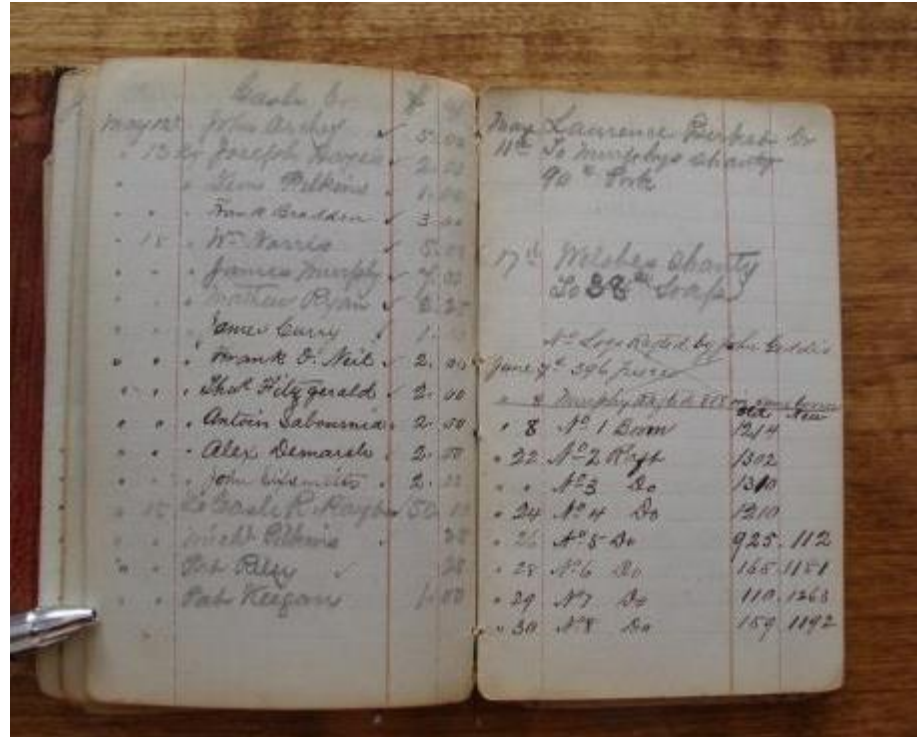 Cash Cr $ cts
May 12th John Archey ✓ 5.00
" 13 " Joseph ✓ 2.00
" " " Pilkins ✓ 1.00
" " " Frank Bradden ✓ 3.00
" 15 " Wm Harris ✓ 5.00
" " " James Murphy ✓
" " " Mathew Ryan ✓
" " " James Curry ✓ 1.
" " " Frank O. Neil ✓ 2.00
" " " Thos Fitzgerald ✓ 2.00
" " " Antoin Sabournia ✓ 2.00
" " " Alex Demarsh ✓ 2.00
" " " John 2.
" 15 To Cash R. 50
" " Pilkins
" " Pat Riley ✓
" " Pat Keegan 1.00
May Laurence
11th To Murphys Shanty
90 lb Pork
17th Welshes Shanty
To 38 Loafs
No Logs Rafted by John Geddis
June 7th 396 pieces
" " Murphy Rafted
Old New
" 8 No 1 Boom 1214
" 22 No 2 Raft 1302
" " No 3 Do 1310
" 24 No 4 Do 1210
" 26 No 5 Do 925.112
" 28 No 6 Do 168.1181
" 29 No 7 Do 110.1263
" 30 No 8 Do 159 1192